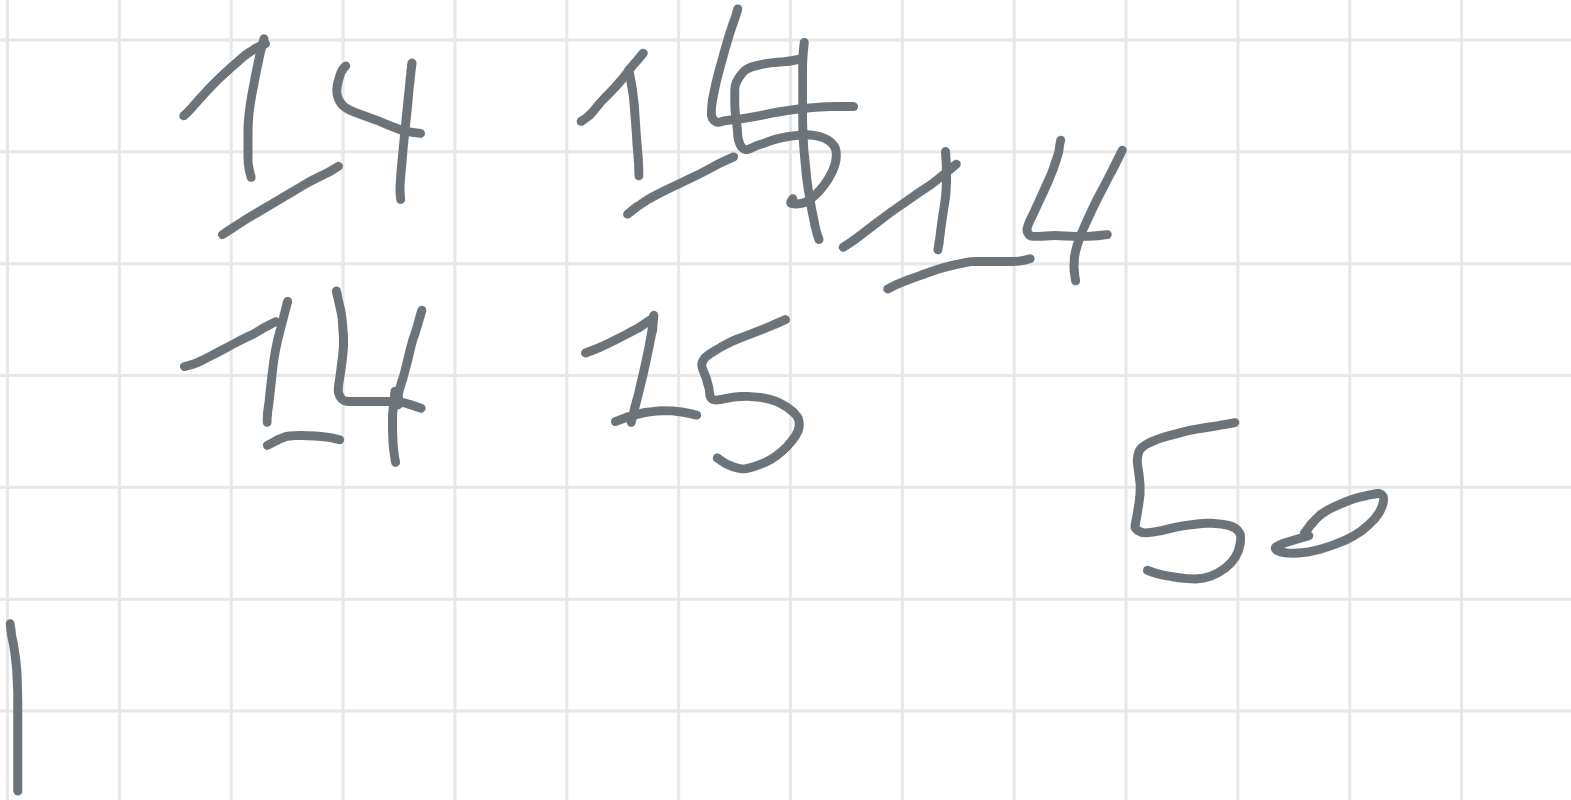 14 14
14
14 15
50
1